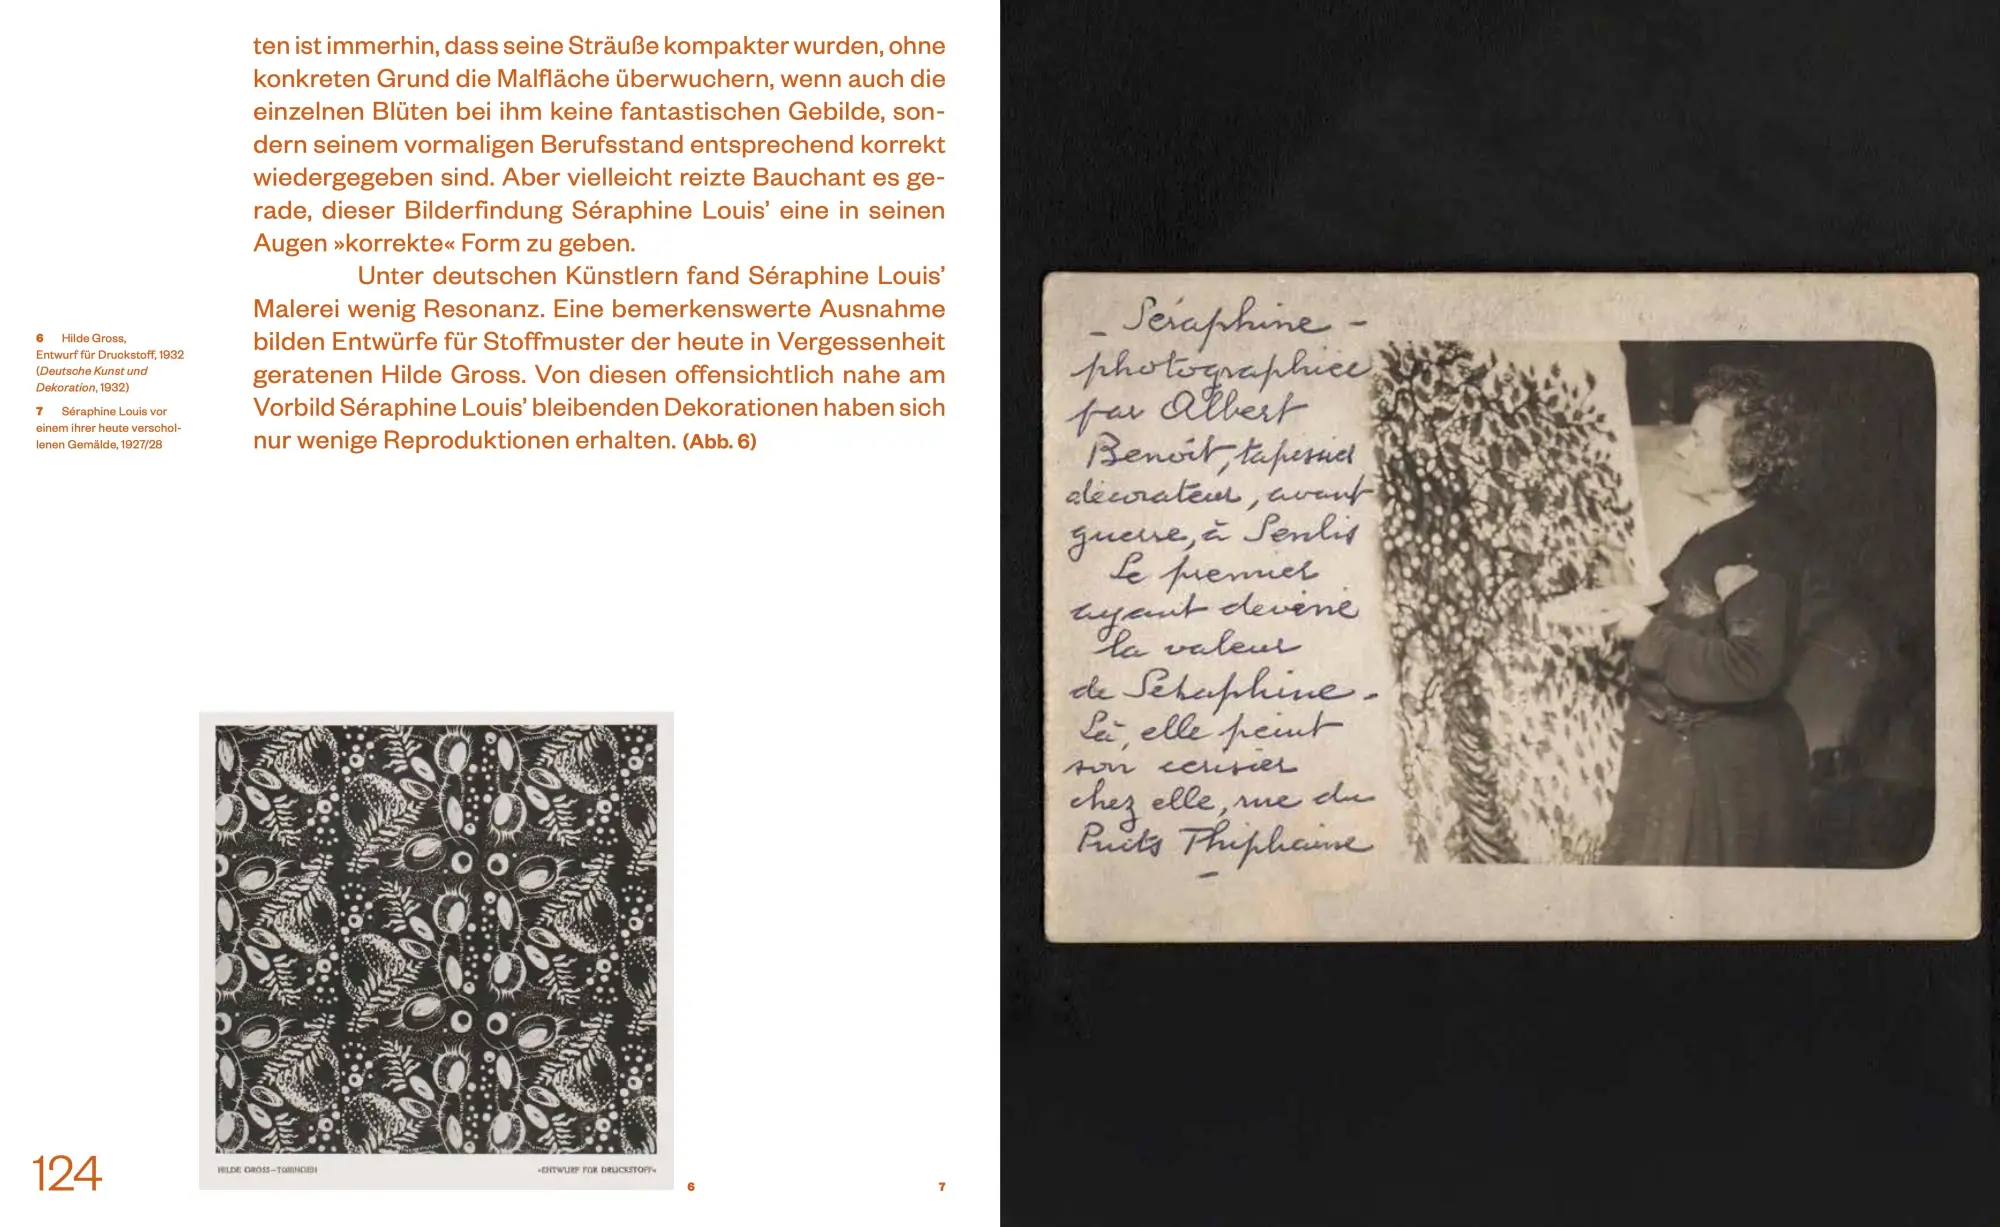 ten ist immerhin, dass seine Sträuße kompakter wurden, ohne
konkreten Grund die Malfläche überwuchern, wenn auch die
einzelnen Blüten bei ihm keine fantastischen Gebilde, son-
dern seinem vormaligen Berufsstand entsprechend korrekt
wiedergegeben sind. Aber vielleicht reizte Bauchant es ge-
rade, dieser Bilderfindung Séraphine Louis’ eine in seinen
Augen »korrekte« Form zu geben.
Unter deutschen Künstlern fand Séraphine Louis’
Malerei wenig Resonanz. Eine bemerkenswerte Ausnahme
bilden Entwürfe für Stoffmuster der heute in Vergessenheit
geratenen Hilde Gross. Von diesen offensichtlich nahe am
Vorbild Séraphine Louis’ bleibenden Dekorationen haben sich
nur wenige Reproduktionen erhalten. (Abb. 6)
6 Hilde Gross,
Entwurf für Druckstoff, 1932
(Deutsche Kunst und
Dekoration, 1932)
7 Séraphine Louis vor
einem ihrer heute verschol-
lenen Gemälde, 1927/28
HILDE GROSS–TÜBINGEN
»ENTWURF FÜR DRUCKSTOFF«
124
6
7
– Séraphine –
photographiée
par Albert
Benoît, tapissier
décorateur, avant
guerre, à Senlis
Le premier
ayant deviné
la valeur
de Séraphine.
Là, elle peint
son cerisier
chez elle, rue du
Puits Thiphaine